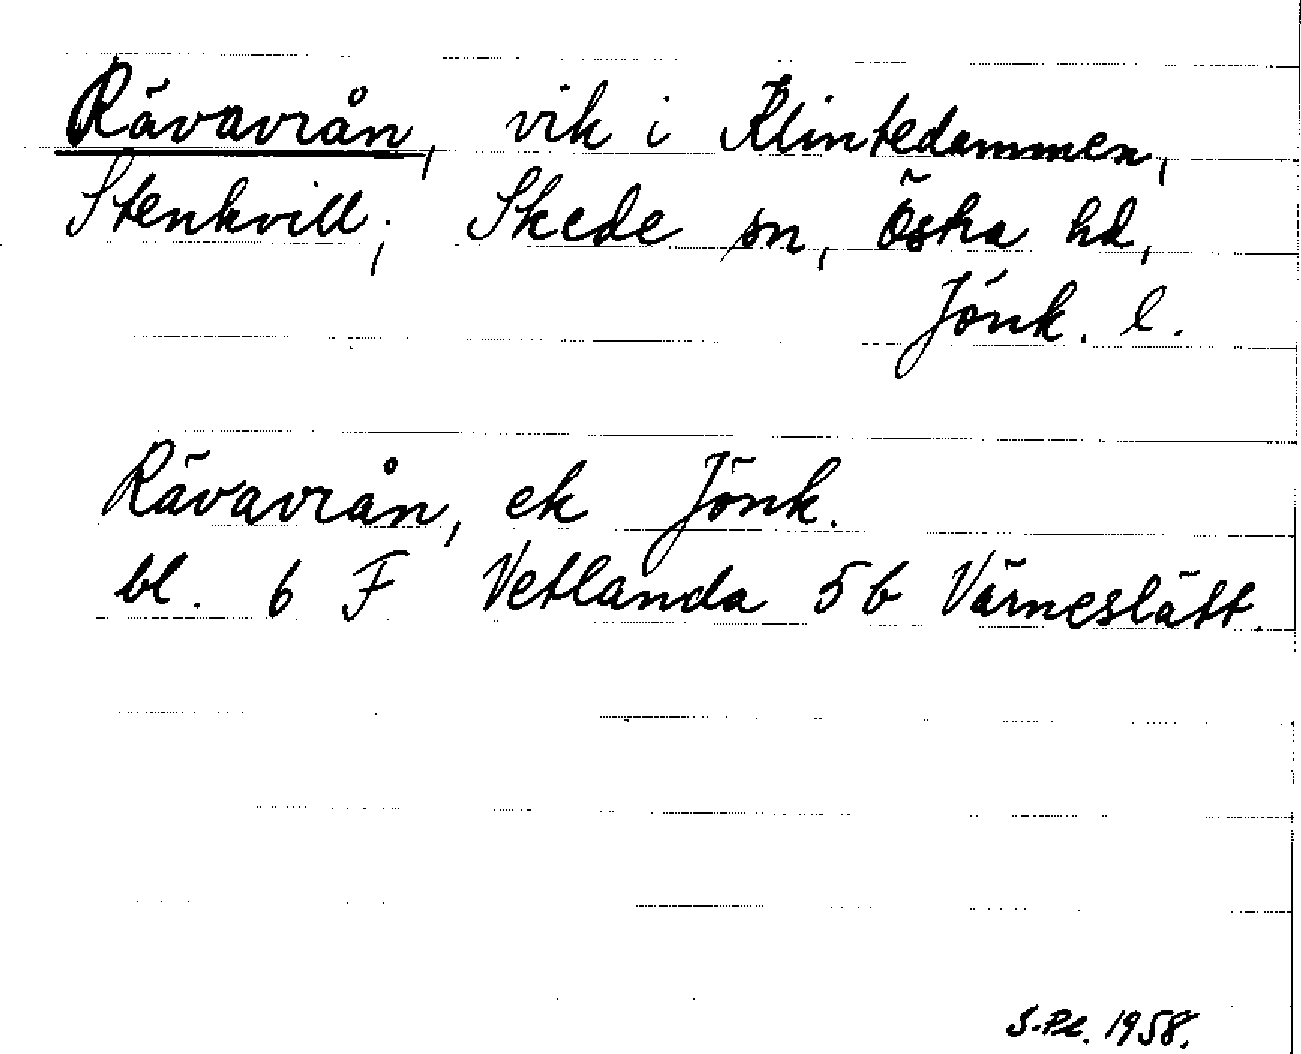 Rävavrån, vik i Klintedammen,
Stenkvill, Skede sn, Östra hd,
Jönk. l.
Rävavrån, ek Jönk.
bl. 6 F Vetlanda 5 b Värneslätt.
S-Pl. 1958.